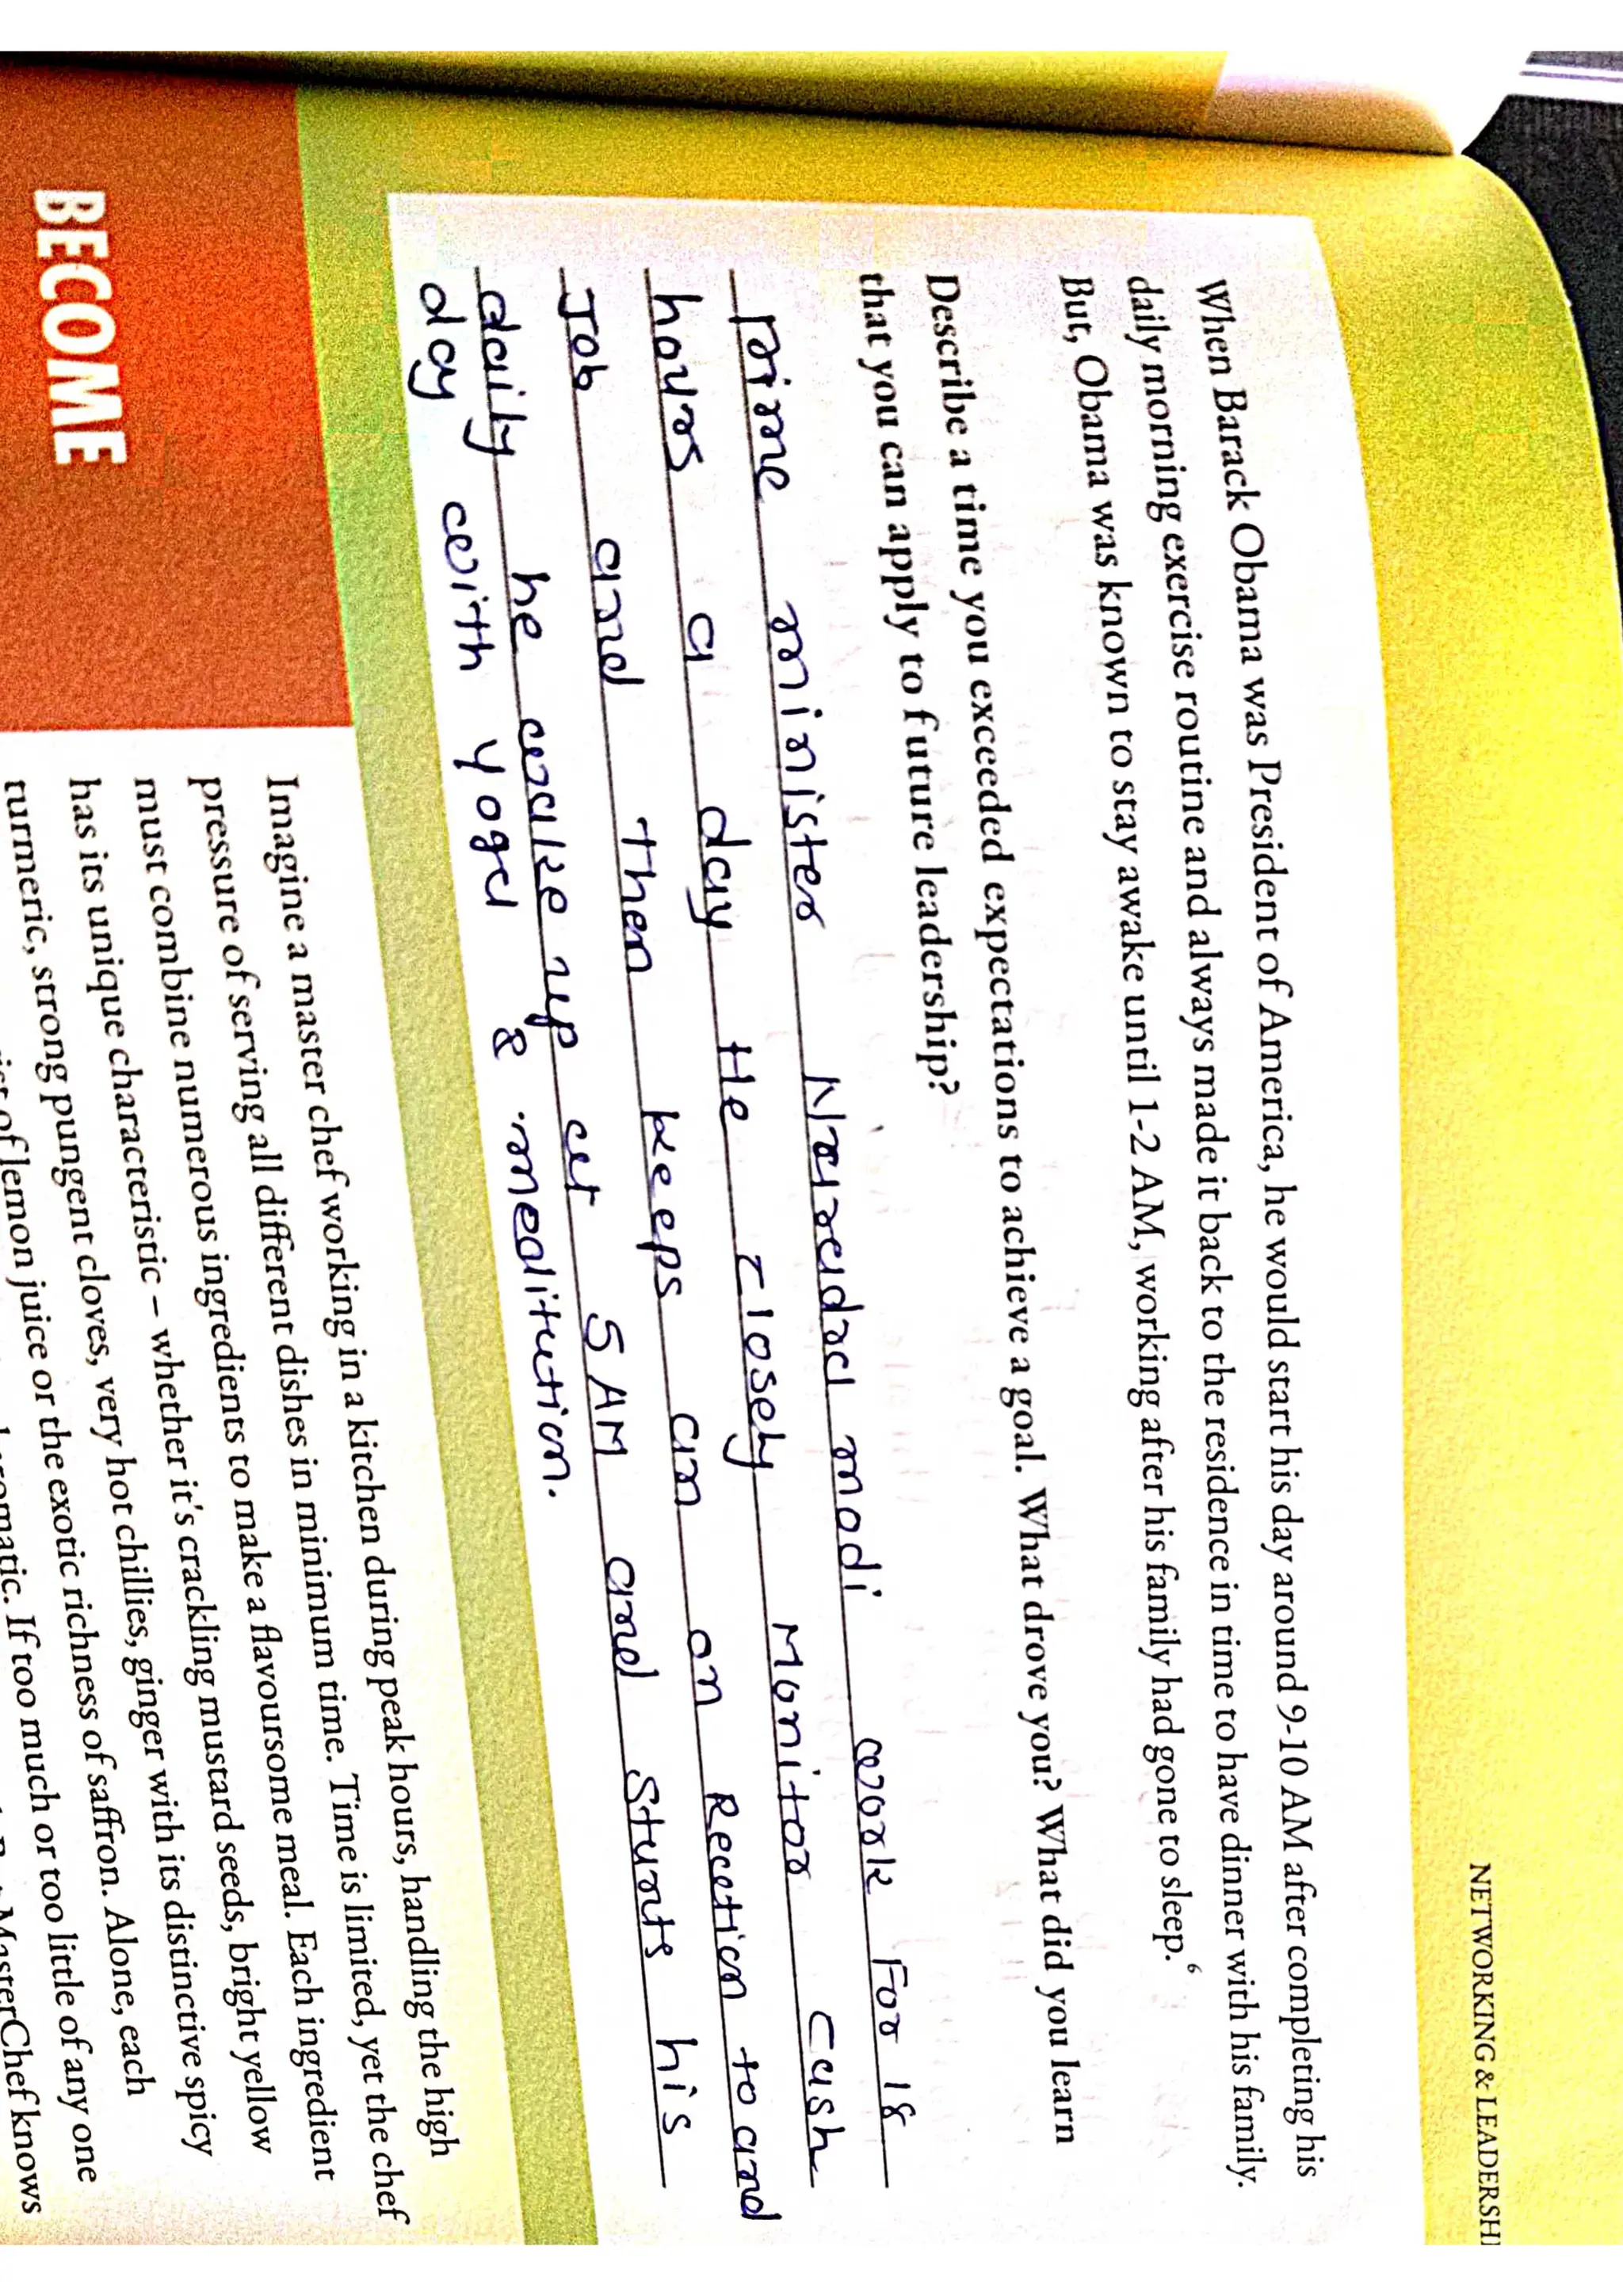 NETWORKING & LEADERSHI
When Barack Obama was President of America, he would start his day around 9-10 AM after completing his
daily morning exercise routine and always made it back to the residence in time to have dinner with his family.
But, Obama was known to stay awake until 1-2 AM, working after his family had gone to sleep.6
Describe a time you exceeded expectations to achieve a goal. What drove you? What did you learn
that you can apply to future leadership?
prime minister Narendra modi work For 18
hours a day He closely Monitor cash
Job and Then keeps an on Reaction to and
daily he wake up at 5 AM and sturts his
day with yoga & meditution.
BECOME
Imagine a master chef working in a kitchen during peak hours, handling the high
pressure of serving all different dishes in minimum time. Time is limited, yet the chef
must combine numerous ingredients to make a flavoursome meal. Each ingredient
has its unique characteristic – whether it's crackling mustard seeds, bright yellow
turmeric, strong pungent cloves, very hot chillies, ginger with its distinctive spicy
of lemon juice or the exotic richness of saffron. Alone, each
If too much or too little of any one
MasterChef knows